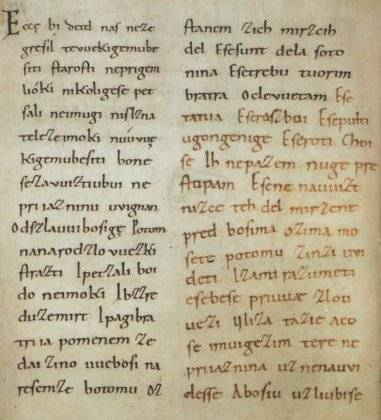 Eccę bi detd naſ neze
greſil tevuekigemube
ſiti ſtaroſti neprigem
lióki nikoligeſe pet
ſali neimugi niſlzna
telezeimoki nuúvuę
kigemubeſiti bone
ſezavuiztiubui ne
priiazninu uvignan
Odſzlauuiboſigę Potom
nanarodzlovuezki
ſtrazti Ipetzali boi
do neimoki Ibzzre
duzemirt Ipagibra
triia pomenem ze
dai zino uueboſi na
reſemze botomu oz
ſtanem zich mirzcih
del Eſeſunt dela ſoto
nina Eſetrebu tuorim
bratra Oclevuetam Eſe
tatua Eſeraszboi Eſepulti
ugongenige Eſeroti Choi
ſe Ih nepazem nuge pre
ſtopam Eſene nauuizt
nizce teh del mirzene
pred boſima ozima mo
ſete potomu zinzi uvi
deti Izami razumeti
eſebeſe priuuae zlou
uezi Uliza tazie aco
ſe imuigezim tere ne
priiaznina uznenauvi
deſſe Aboſiu uzliubiſe